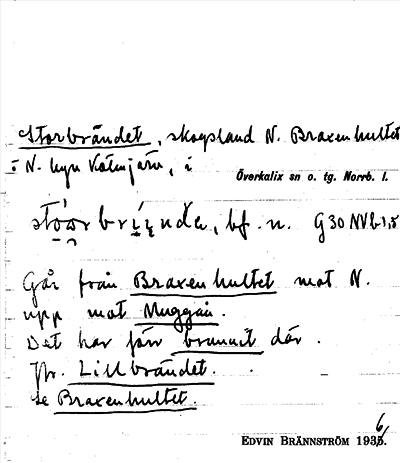 Storbrändet, skogsland N. Braxenhultet
i N. byn Kölmjärv, i
Överkalix sn o. tg. Norrb. l.
bf. n. G30 NV b 1,5
Går från Braxenhultet mot N.
upp mot Muggån.
Det har förr brunnit där.
Jfr. Lillbrändet.
Se Braxenhultet.
EDVIN BRÄNNSTRÖM 1936.